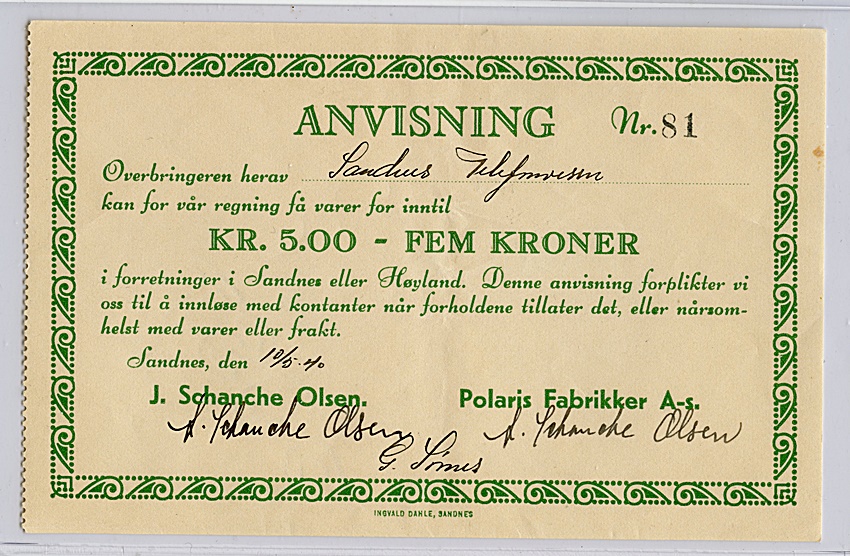 ANVISNING Nr. 81
Overbringeren herav Sandnes Telefonvesen
kan for vår regning få varer for inntil
KR. 5.00 - FEM KRONER
i forretninger i Sandnes eller Høyland. Denne anvisning forplikter vi
oss til å innløse med kontanter når forholdene tillater det, eller nårsom-
helst med varer eller frakt.
Sandnes, den 10/5-40
J. Schanche Olsen. Polaris Fabrikker A-s.
A. Schanche Olsen A. Schanche Olsen
G.
INGVALD DAHLE, SANDNES